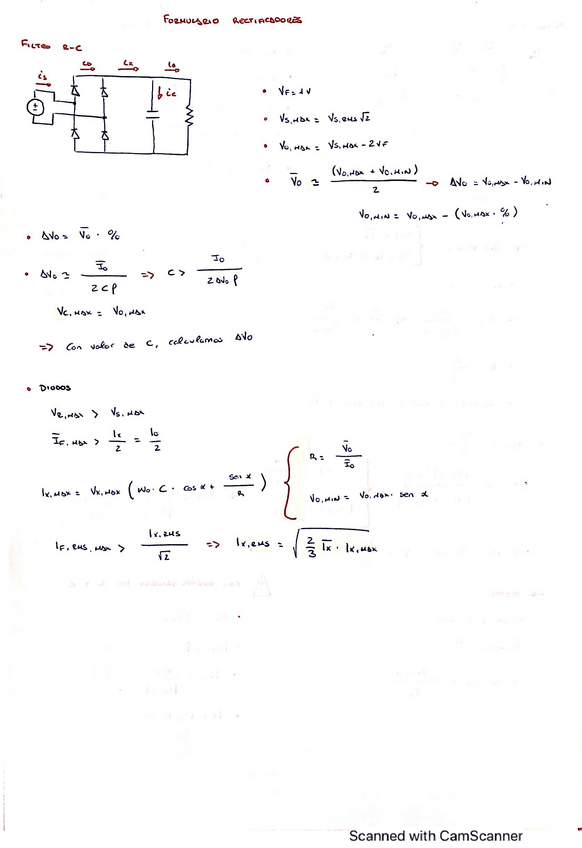 FORMULARIO RECTIFICADORES
FILTRO R-C
is io ix Io
ic
• VF = 1V
• Vs,MAX = Vs,RMS √2
• Vo,MAX = Vs,MAX - 2VF
• V̅o ≃ (Vo,MAX + Vo,MIN) / 2 → ΔVo = Vo,MAX - Vo,MIN
Vo,MIN = Vo,MAX - (Vo,MAX · %)
• ΔVo = V̅o · %
• ΔVo ≃ I̅o / 2Cf => C > Io / 2ΔVo f
Vc,MAX = Vo,MAX
=> Con valor de C, calculamos ΔVo
• DIODOS
VR,MAX > Vs,MAX
I̅F,MAX > Ix / 2 = Io / 2
Ix,MAX = Vx,MAX (Wo · C · cos α + sen α / R) { R = V̅o / I̅o
Vo,MIN = Vo,MAX · sen α
IF,RMS,MAX > Ix,RMS / √2 => Ix,RMS = √(2/3 I̅x · Ix,MAX)
Scanned with CamScanner